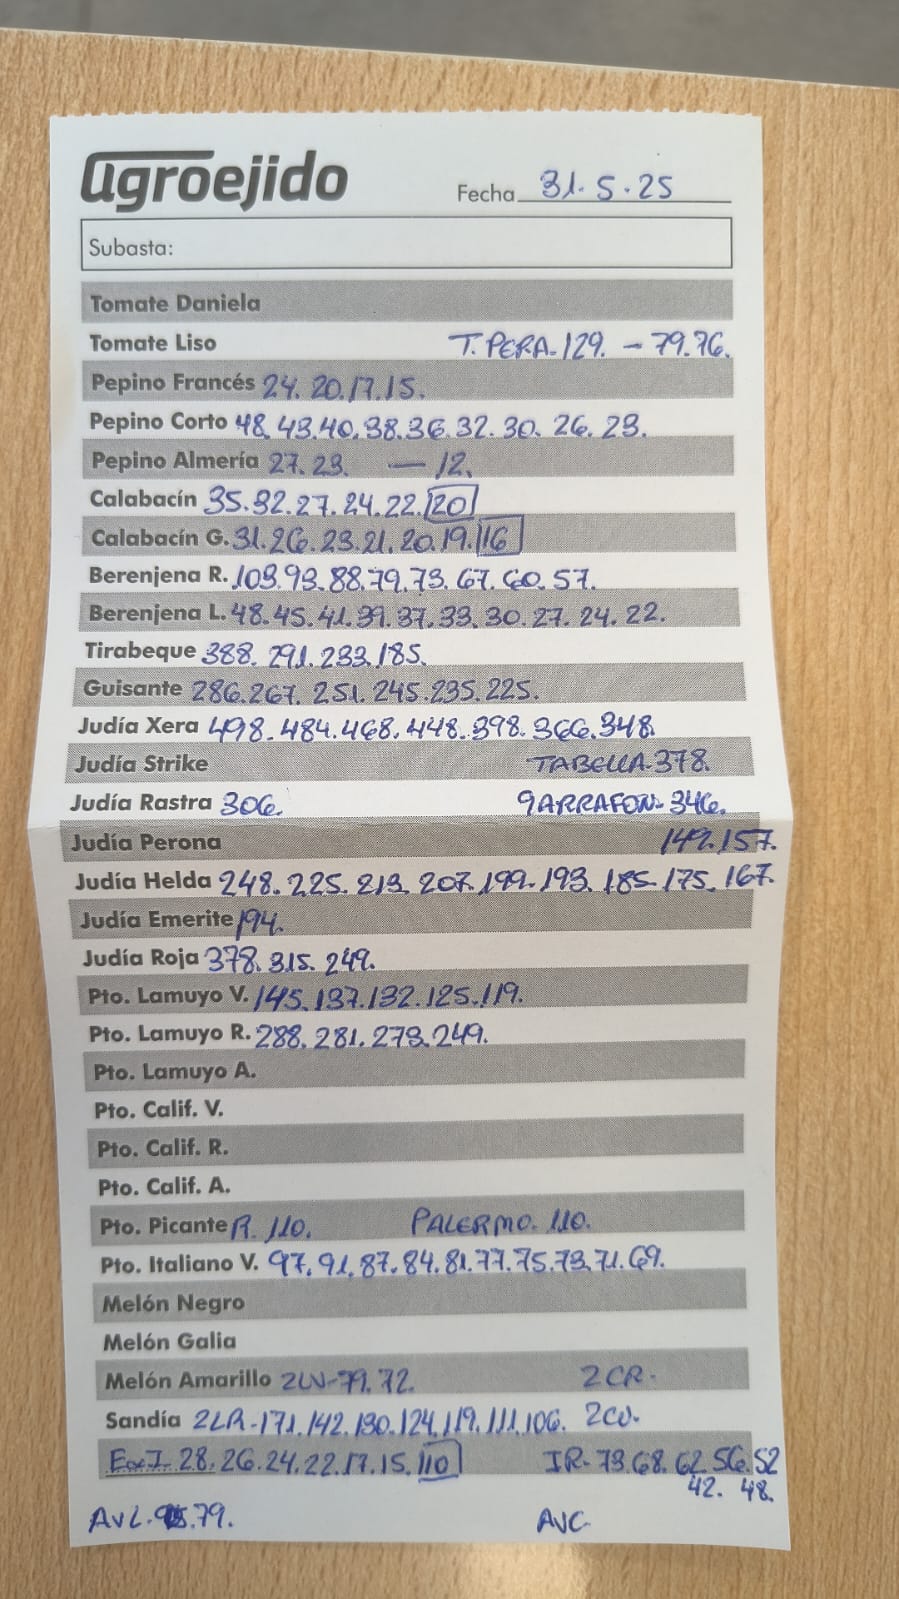 agroejido
Fecha 31.5.25
Subasta:
Tomate Daniela
Tomate Liso T. PERA-129. — 79.76.
Pepino Francés 24. 20.17.15.
Pepino Corto 48.43.40.38.36.32.30.26.23.
Pepino Almería 27.23. — 12.
Calabacín 35.32.27.24.22.20
Calabacín G. 31.26.23.21.20.19.16
Berenjena R. 103.93.88.79.73.67.60.57.
Berenjena L. 48.45.41.39.37.33.30.27.24.22.
Tirabeque 388. 291.233.185.
Guisante 286.267.251.245.235.225.
Judía Xera 498.484.468.448.398.366.348.
Judía Strike TABELLA-378.
Judía Rastra 306. GARRAFON-346.
Judía Perona 149.157.
Judía Helda 248.225.213.207.199.193.185.175.167.
Judía Emerite 194.
Judía Roja 378.315.249.
Pto. Lamuyo V. 145.137.132.125.119.
Pto. Lamuyo R. 288.281.273.249.
Pto. Lamuyo A.
Pto. Calif. V.
Pto. Calif. R.
Pto. Calif. A.
Pto. Picante R. 110. PALERMO. 110.
Pto. Italiano V. 97.91.87.84.81.77.75.73.71.69.
Melón Negro
Melón Galia
Melón Amarillo 79.72. 2CR-
Sandía 2LR-171.142.130.124.119.111.106.
28.26.24.22.17.15.10 IR-73.68.62.56.52
42. 48.
79. AVC-